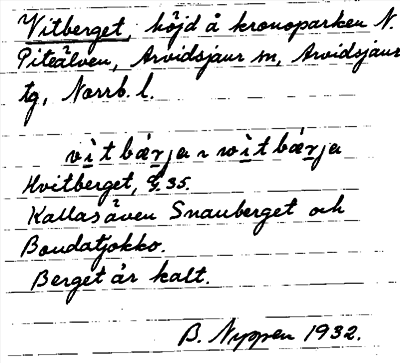 Vitberget, höjd å kronoparken N.
Piteälven, Arvidsjaur sn, Arvidsjaur
tg, Norrb. l.
vìtbær̲ja ~ wìtbær̲ja
Hvitberget, G. 35.
Kallas även Snauberget och
Boudatjokko.
Berget är kalt.
B. Nyppen 1932.